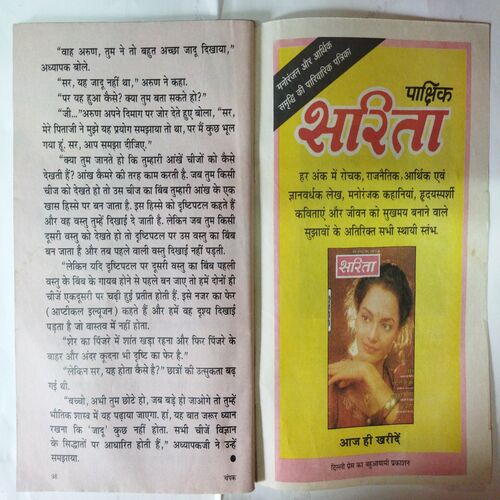 "वाह अरुण, तुम ने तो बहुत अच्छा जादू दिखाया,"
अध्यापक बोले.
"सर, यह जादू नहीं था," अरुण ने कहा.
"पर यह हुआ कैसे? क्या तुम बता सकते हो?"
"जी..."अरुण अपने दिमाग पर जोर देते हुए बोला, "सर,
मेरे पिताजी ने मुझे यह प्रयोग समझाया तो था, पर मैं कुछ भूल
गया हूं. सर, आप समझा दीजिए,"
"क्या तुम जानते हो कि तुम्हारी आंखें चीजों को कैसे
देखती हैं? आंख कैमरे की तरह काम करती है. जब तुम किसी
चीज को देखते हो तो उस चीज का बिंब तुम्हारी आंख के एक
खास हिस्से पर बन जाता है. इस हिस्से को दृष्टिपटल कहते हैं
और वह वस्तु तुम्हें दिखाई दे जाती है. लेकिन जब तुम किसी
दूसरी वस्तु को देखते हो तो दृष्टिपटल पर उस वस्तु का बिंब
बन जाता है और तब पहले वाली वस्तु दिखाई नहीं पड़ती.
"लेकिन यदि दृष्टिपटल पर दूसरी वस्तु का बिंब पहली
वस्तु के बिंब के गायब होने से पहले बन जाए तो हमें दोनों ही
चीजें एकदूसरी पर चढ़ी हुई प्रतीत होती हैं. इसे नजर का फेर
(आप्टीकल इल्यूजन) कहते हैं और हमें वह दृश्य दिखाई
पड़ता है जो वास्तव में नहीं होता.
"शेर का पिंजरे में शांत खड़ा रहना और फिर पिंजरे के
बाहर और अंदर कूदना भी दृष्टि का फेर है."
"लेकिन सर, यह होता कैसे है?" छात्रों की उत्सुकता बढ़
गई थी.
"बच्चो, अभी तुम छोटे हो, जब बड़े हो जाओगे तो तुम्हें
भौतिक शास्त्र में यह पढ़ाया जाएगा. हां, यह बात जरूर ध्यान
रखना कि 'जादू' कुछ नहीं होता. सभी चीजें विज्ञान
के सिद्धांतों पर आधारित होती हैं," अध्यापकजी ने उन्हें
समझाया.
चंपक
मनोरंजन और आर्थिक
समृद्धि की पारिवारिक पत्रिका
पाक्षिक
सरिता
हर अंक में रोचक, राजनैतिक, आर्थिक एवं
ज्ञानवर्धक लेख, मनोरंजक कहानियां, हृदयस्पर्शी
कविताएं और जीवन को सुखमय बनाने वाले
सुझावों के अतिरिक्त सभी स्थायी स्तंभ.
सरिता
आज ही खरीदें
दिल्ली प्रेस का बहुआयामी प्रकाशन